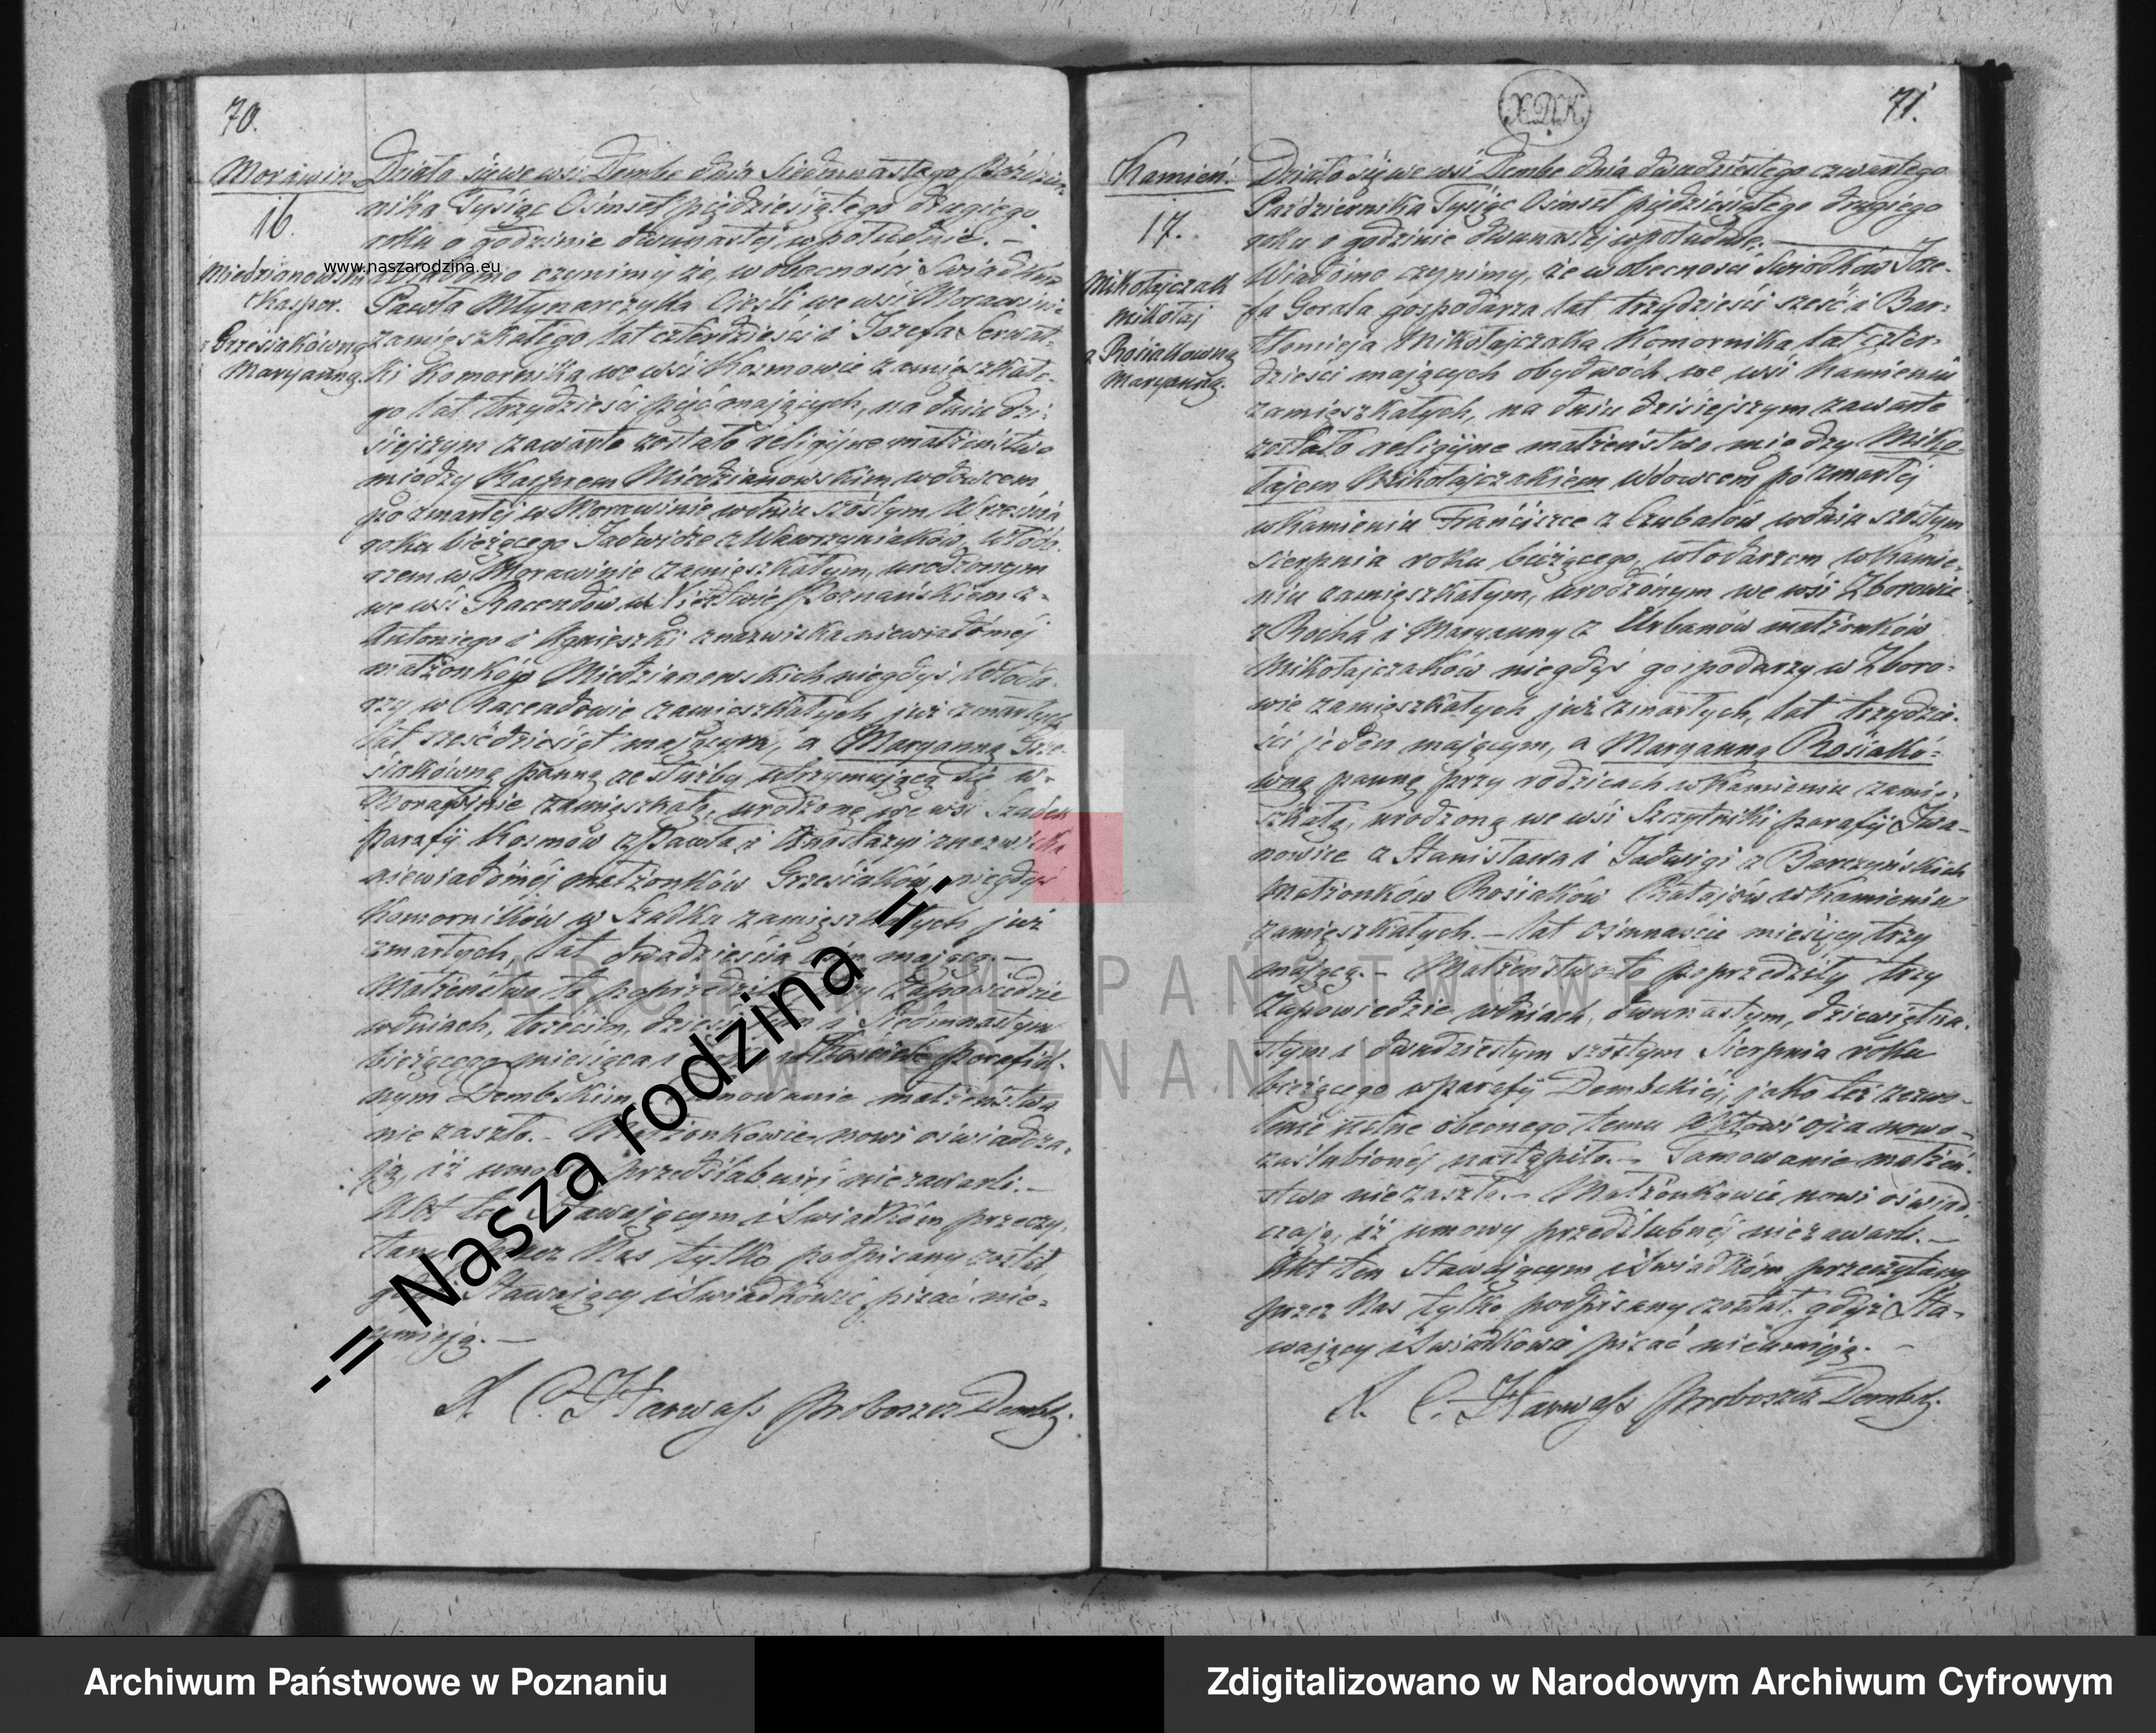 70.
Morawin
16.
Miedzianowski
Kasper.
z Grzesiakówną
Maryanną.
Działo się we wsi Dembe dnia Siedmnastego Paździer-
nika Tysiąc Ośmset pięćdziesiątego drugiego
roku o godzinie dwunastej w południe. –
Wiadomo czynimy że w obecności Świadków
Pawła Młynarczyka Cieśli we wsi Morawinie
zamieszkałego lat czterdzieści i Józefa Serwat-
ki Komornika we wsi Kosmowie zamieszkałe-
go lat trzydzieści pięć mających, na dniu dzi-
siejszym zawarte zostało religijne małżeństwo
między Kasprem Miedzianowskim wdowcem
po zmarłej w Morawinie w dniu szóstym Września
roku bieżącego Jadwidze z Wawrzyniaków, włoda-
rzem w Morawinie zamieszkałym, urodzonym
we wsi Racendów w Xięstwie Poznańskiem z
Antoniego i Agnieszki z nazwiska niewiadomej
małżonków Miedzianowskich niegdyś Włoda-
rzy w Racendowie zamieszkałych już zmarłych
lat sześćdziesiąt mającym, a Maryanną Grze-
siakówną panną ze służby utrzymującą się w
Morawinie zamieszkałą, urodzoną we wsi Szadek
parafii Kosmów z Pawła i Anastazyi z nazwiska
niewiadomej małżonków Grzesiaków niegdyś
Komorników w Szadku zamieszkałych już
zmarłych, lat dwadzieścia ośm mającą. –
Małżeństwo to poprzedziły trzy Zapowiedzie
w dniach, trzecim, dziesiątym i Siedmnastym
bieżącego miesiąca i roku w Kościele parafial-
nym Dembskim. – Tamowanie małżeństwa
nie zaszło. – Małżonkowie nowi oświadcza-
ją, iż umowy przedślubnej nie zawarli. –
Akt ten Stawającym i Świadkom przeczy-
tany przez Nas tylko podpisany został,
gdyż Stawający i Świadkowie pisać nie
umieją. –
X. C. Harwass Proboszcz Dembski.
71.
Kamień.
17.
Mikołajczak
Mikołaj
z Rosiakówną
Maryanną.
Działo się we wsi Dembe dnia dwudziestego czwartego
Października Tysiąc Ośmset pięćdziesiątego drugiego
roku o godzinie dwunastej w południe. –
Wiadomo czynimy, że w obecności Świadków Józe-
fa Gorala gospodarza lat trzydzieści sześć i Bar-
tłomieja Mikołajczaka Komornika lat czter-
dzieści mających obydwóch we wsi Kamieniu
zamieszkałych, na dniu dzisiejszym zawarte
zostało religijne małżeństwo między Miko-
łajem Mikołajczakiem Wdowcem po zmarłej
w Kamieniu Franciszce z Czubałów w dniu szóstym
Sierpnia roku bieżącego, włodarzem w Kamie-
niu zamieszkałym, urodzonym we wsi Zborowie
z Rocha i Maryanny z Urbanów małżonków
Mikołajczaków niegdyś gospodarzy w Zboro-
wie zamieszkałych już zmarłych, lat trzydzie-
ści jeden mającym, a Maryanną Rosiakó-
wną panną przy rodzicach w Kamieniu zamie-
szkałą, urodzoną we wsi Szczytniki parafii Iwa-
nowice z Stanisława i Jadwigi z Barczyńskich
małżonków Rosiaków Ratajów w Kamieniu
zamieszkałych. – lat ośmnaście miesięcy trzy
mającą. – Małżeństwo to poprzedziły trzy
Zapowiedzie w dniach, dwunastym, dziewiętna-
stym i dwudziestym szóstym Sierpnia roku
bieżącego w parafii Dembskiej, jako też zezwo-
lenie ustne obecnego temu Aktowi ojca nowo-
zaślubionej nastąpiło. – Tamowanie małżeń-
stwa nie zaszło. – Małżonkowie nowi oświad-
czają, iż umowy przedślubnej nie zawarli. –
Akt ten Stawającym i Świadkom przeczytany
przez Nas tylko podpisany został gdyż Sta-
wający i Świadkowie pisać nie umieją. –
X. C. Harwass Proboszcz Dembski.
www.naszarodzina.eu
-= Nasza rodzina =-
ARCHIWUM PAŃSTWOWE
W POZNANIU
Archiwum Państwowe w Poznaniu
Zdigitalizowano w Narodowym Archiwum Cyfrowym